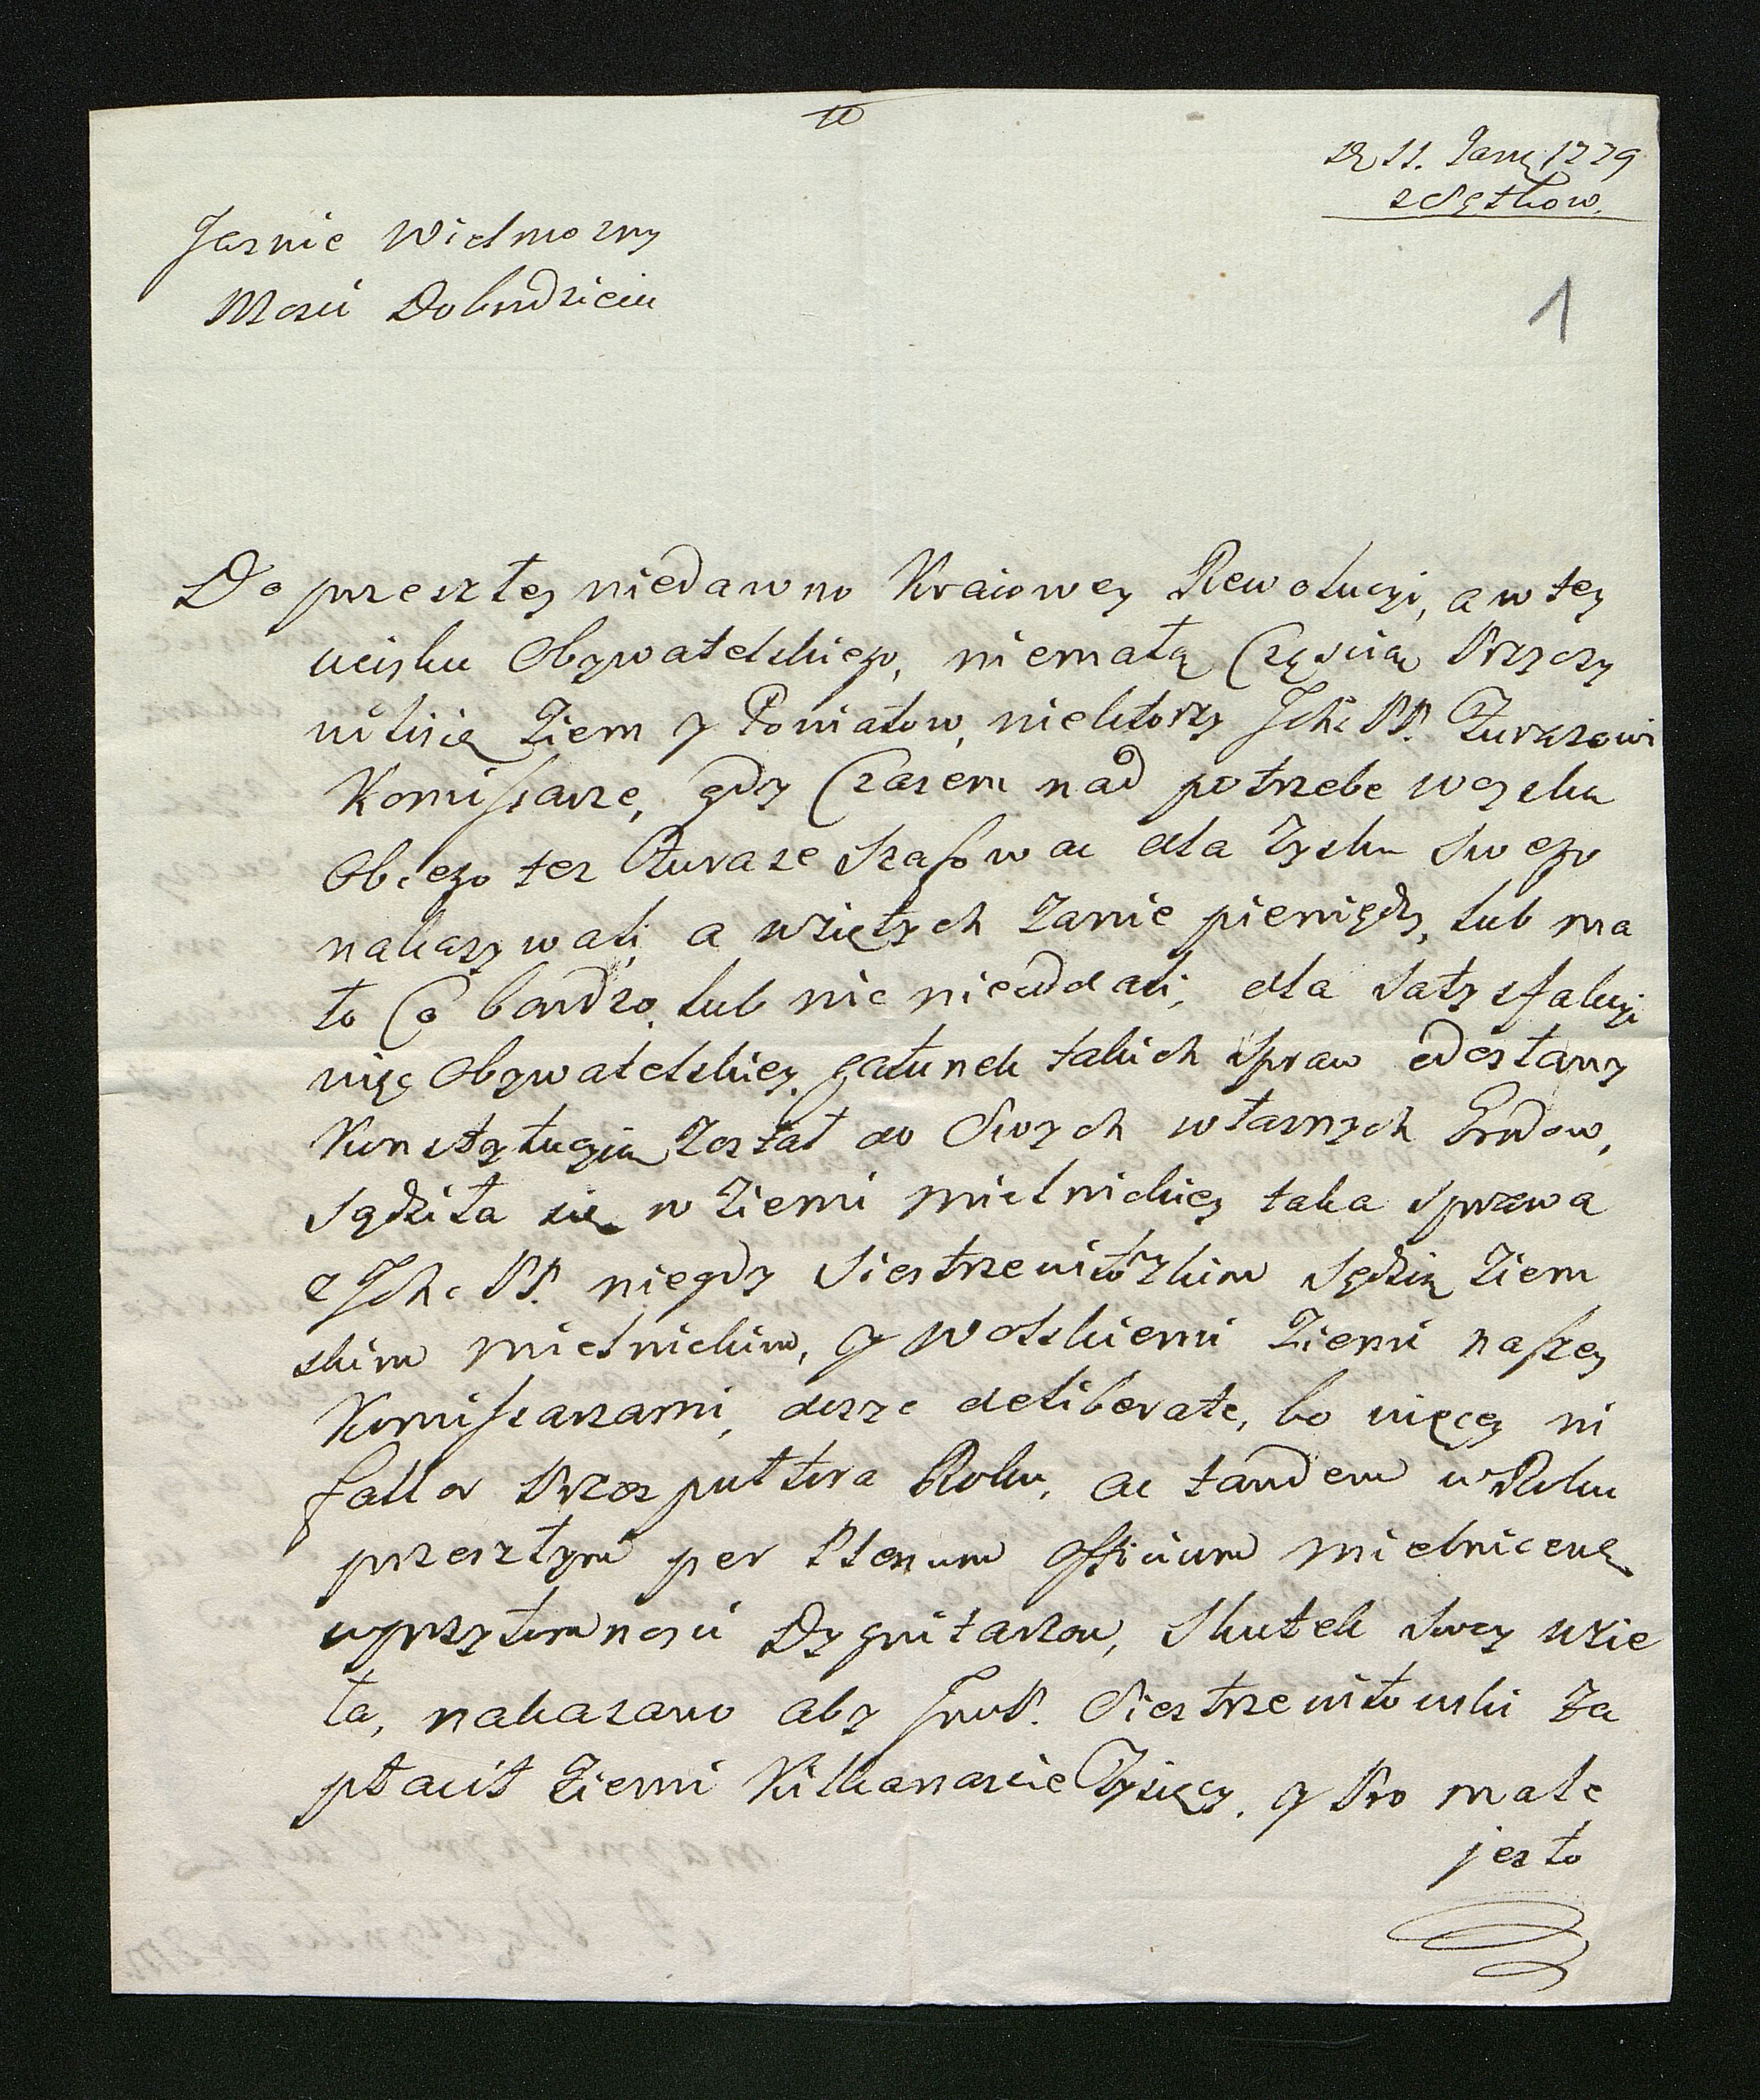 D. 11. Jany 1779
z Sętkow.
1
Jasnie Wielmozny
Mosci Dobrodzieiu
Do przeszłey niedawno Kraiowey Rewolucyi, a w tey
ucisku Obywatelskiego, niemałą Częscią Przyczy
nilisię Ziem y Powiatow, niektorzy Jchc PP. Furazowi
Komissarze, gdy Czasem nad potrzebe woyska
Obcego tez Furaze Szafowac dla zysku swego
nakazywali, a wziętych Zanie pieniędzy, lub ma
ło Co bardzo, lub nic nieoddali, dla Satysfakcyi
więc Obywatelskiey, gatunek takich spraw odesłany
Konstytucyią Został do Swych własnych Grodow,
Sądziła się w Ziemi Mielnickiey taka sprawa
z Jchc PP. niegdy Siestrzewitowskim Sędzią Ziem
skim Mielnickim, y Wolskiemi Ziemi naszey
Komissarzami, dosze deliberate, bo więcey ni
fallor Przez puttora Roku, ac tandem w Roku
przeszłym per Plenum Officium Mielnicense
w przytomnosci Dygnitarzow, Skutek Swoy wzie
ła, nakazano aby JmP. Siestrzewitowski Za
płacił Ziemi Kilkanascie Tysięcy, y Pro male
jesto